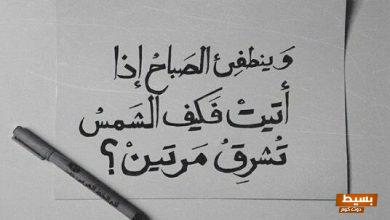 وَينطفِئ الصَباحُ إذا
أتيتْ فَكيف الشمسُ
تُشرِقُ مَرتين؟
بسيط
دوت كوم